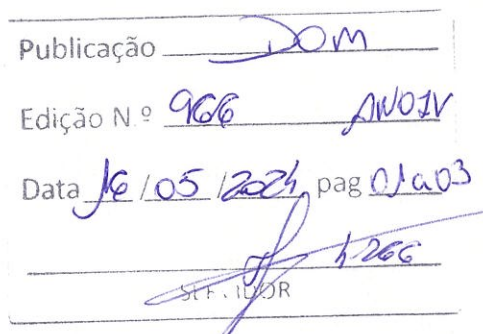 Publicação DOM
Edição N.º 966 ANO IV
Data 16/05/2024 pag 01 a 03
4266
SERVIDOR